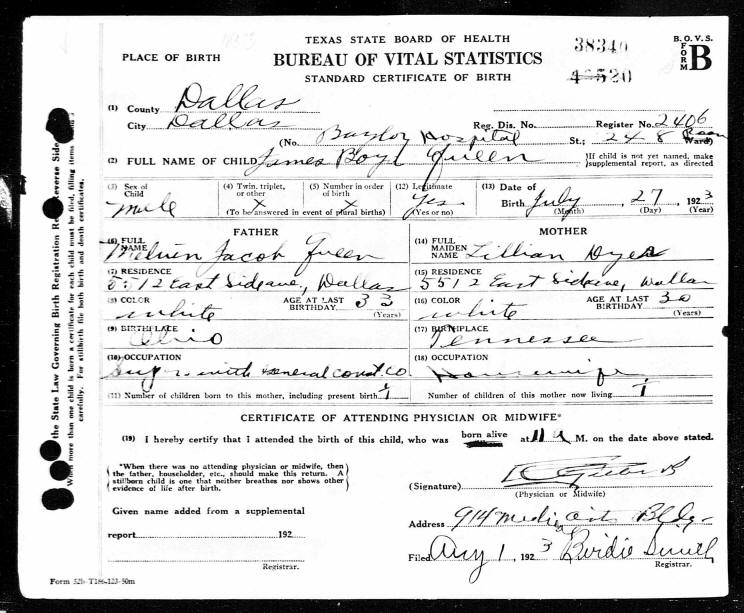 TEXAS STATE BOARD OF HEALTH
BUREAU OF VITAL STATISTICS
STANDARD CERTIFICATE OF BIRTH
38340
B. O. V. S.
FORM B
PLACE OF BIRTH
(1) County Dallas
City Dallas
Reg. Dis. No. Register No. 2406
(No. Baylor Hospital St.; 24-8 Room Ward)
(2) FULL NAME OF CHILD James Boyd Queen
If child is not yet named, make supplemental report, as directed
(3) Sex of Child Male
(4) Twin, triplet, or other X
(5) Number in order of birth X
(To be answered in event of plural births)
(12) Legitimate Yes (Yes or no)
(13) Date of Birth July 27 1923
(Month) (Day) (Year)
FATHER
(6) FULL NAME Melvin Jacob Queen
(7) RESIDENCE 5512 East Side ave, Dallas
(8) COLOR White
AGE AT LAST BIRTHDAY 33 (Years)
(9) BIRTHPLACE Ohio
(10) OCCUPATION
with General Const. Co.
MOTHER
(14) FULL MAIDEN NAME Lillian Dyer
(15) RESIDENCE 5512 East Side ave, Dallas
(16) COLOR White
AGE AT LAST BIRTHDAY 30 (Years)
(17) BIRTHPLACE Tennessee
(18) OCCUPATION
Housewife
(11) Number of children born to this mother, including present birth 1
Number of children of this mother now living 1
CERTIFICATE OF ATTENDING PHYSICIAN OR MIDWIFE*
(19) I hereby certify that I attended the birth of this child, who was born alive at 11 a M. on the date above stated.
*When there was no attending physician or midwife, then
the father, householder, etc., should make this return. A
stillborn child is one that neither breathes nor shows other
evidence of life after birth.
(Signature)
(Physician or Midwife)
Given name added from a supplemental
report 192
Registrar.
Address 914 Medical Arts Bldg.
Filed Aug 1, 1923 Birdie
Registrar.
Form 52b-T186-123-50m
the State Law Governing Birth Registration
more than one child is born a certificate for each child must be filed, filling items
carefully. For stillbirth file both birth and death certificates.